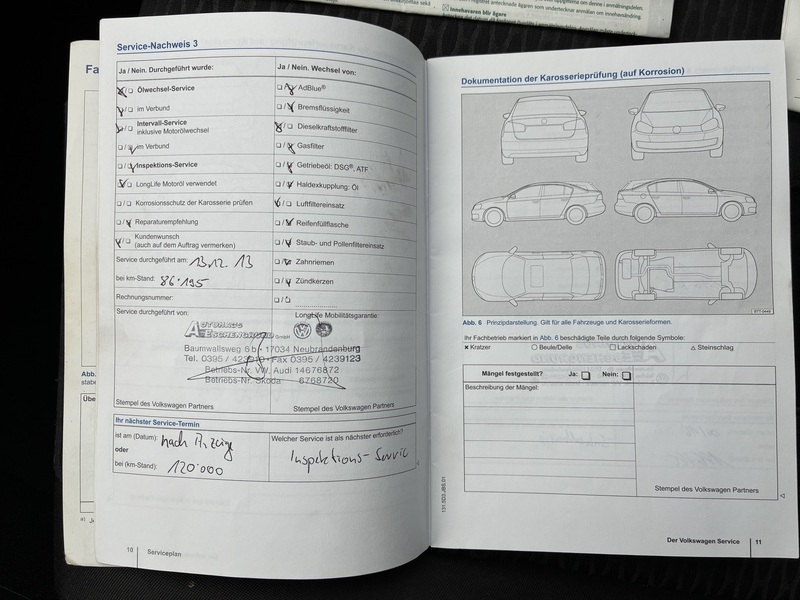 Innehavaren blir ägare
Fa
Abb.
Übe
Service-Nachweis 3
Ja / Nein. Durchgeführt wurde:
Ölwechsel-Service
im Verbund
Intervall-Service
inklusive Motorölwechsel
im Verbund
Inspektions-Service
LongLife Motoröl verwendet
Korrosionsschutz der Karosserie prüfen
Reparaturempfehlung
Kundenwunsch
(auch auf dem Auftrag vermerken)
Service durchgeführt am: 13.12.13
bei km-Stand: 86.195
Rechnungsnummer:
Ja / Nein. Wechsel von:
AdBlue®
Bremsflüssigkeit
Dieselkraftstofffilter
Gasfilter
Getriebeöl: DSG®, ATF
Haldexkupplung: Öl
Luftfiltereinsatz
Reifenfüllflasche
Staub- und Pollenfiltereinsatz
Zahnriemen
Zündkerzen
Service durchgeführt von:
LongLife Mobilitätsgarantie:
AUTOHAUS
ESCHENGRUND GmbH
Baumwallsweg 6 b • 17034 Neubrandenburg
Tel. 0395 / Fax 0395 / 4239123
Betriebs-Nr. VW, Audi 14676872
Betriebs-Nr. Skoda 6768720
Stempel des Volkswagen Partners
Stempel des Volkswagen Partners
Ihr nächster Service-Termin
ist am (Datum): nach Anzeige
oder
bei (km-Stand): 120.000
Welcher Service ist als nächster erforderlich?
Inspektions-Service
10 Serviceplan
Dokumentation der Karosserieprüfung (auf Korrosion)
Abb. 6 Prinzipdarstellung. Gilt für alle Fahrzeuge und Karosserieformen.
Ihr Fachbetrieb markiert in Abb. 6 beschädigte Teile durch folgende Symbole:
× Kratzer ○ Beule/Delle □ Lackschaden △ Steinschlag
Mängel festgestellt? Ja: Nein:
Beschreibung der Mängel:
Stempel des Volkswagen Partners
131.5D3.JBS.01
Der Volkswagen Service 11